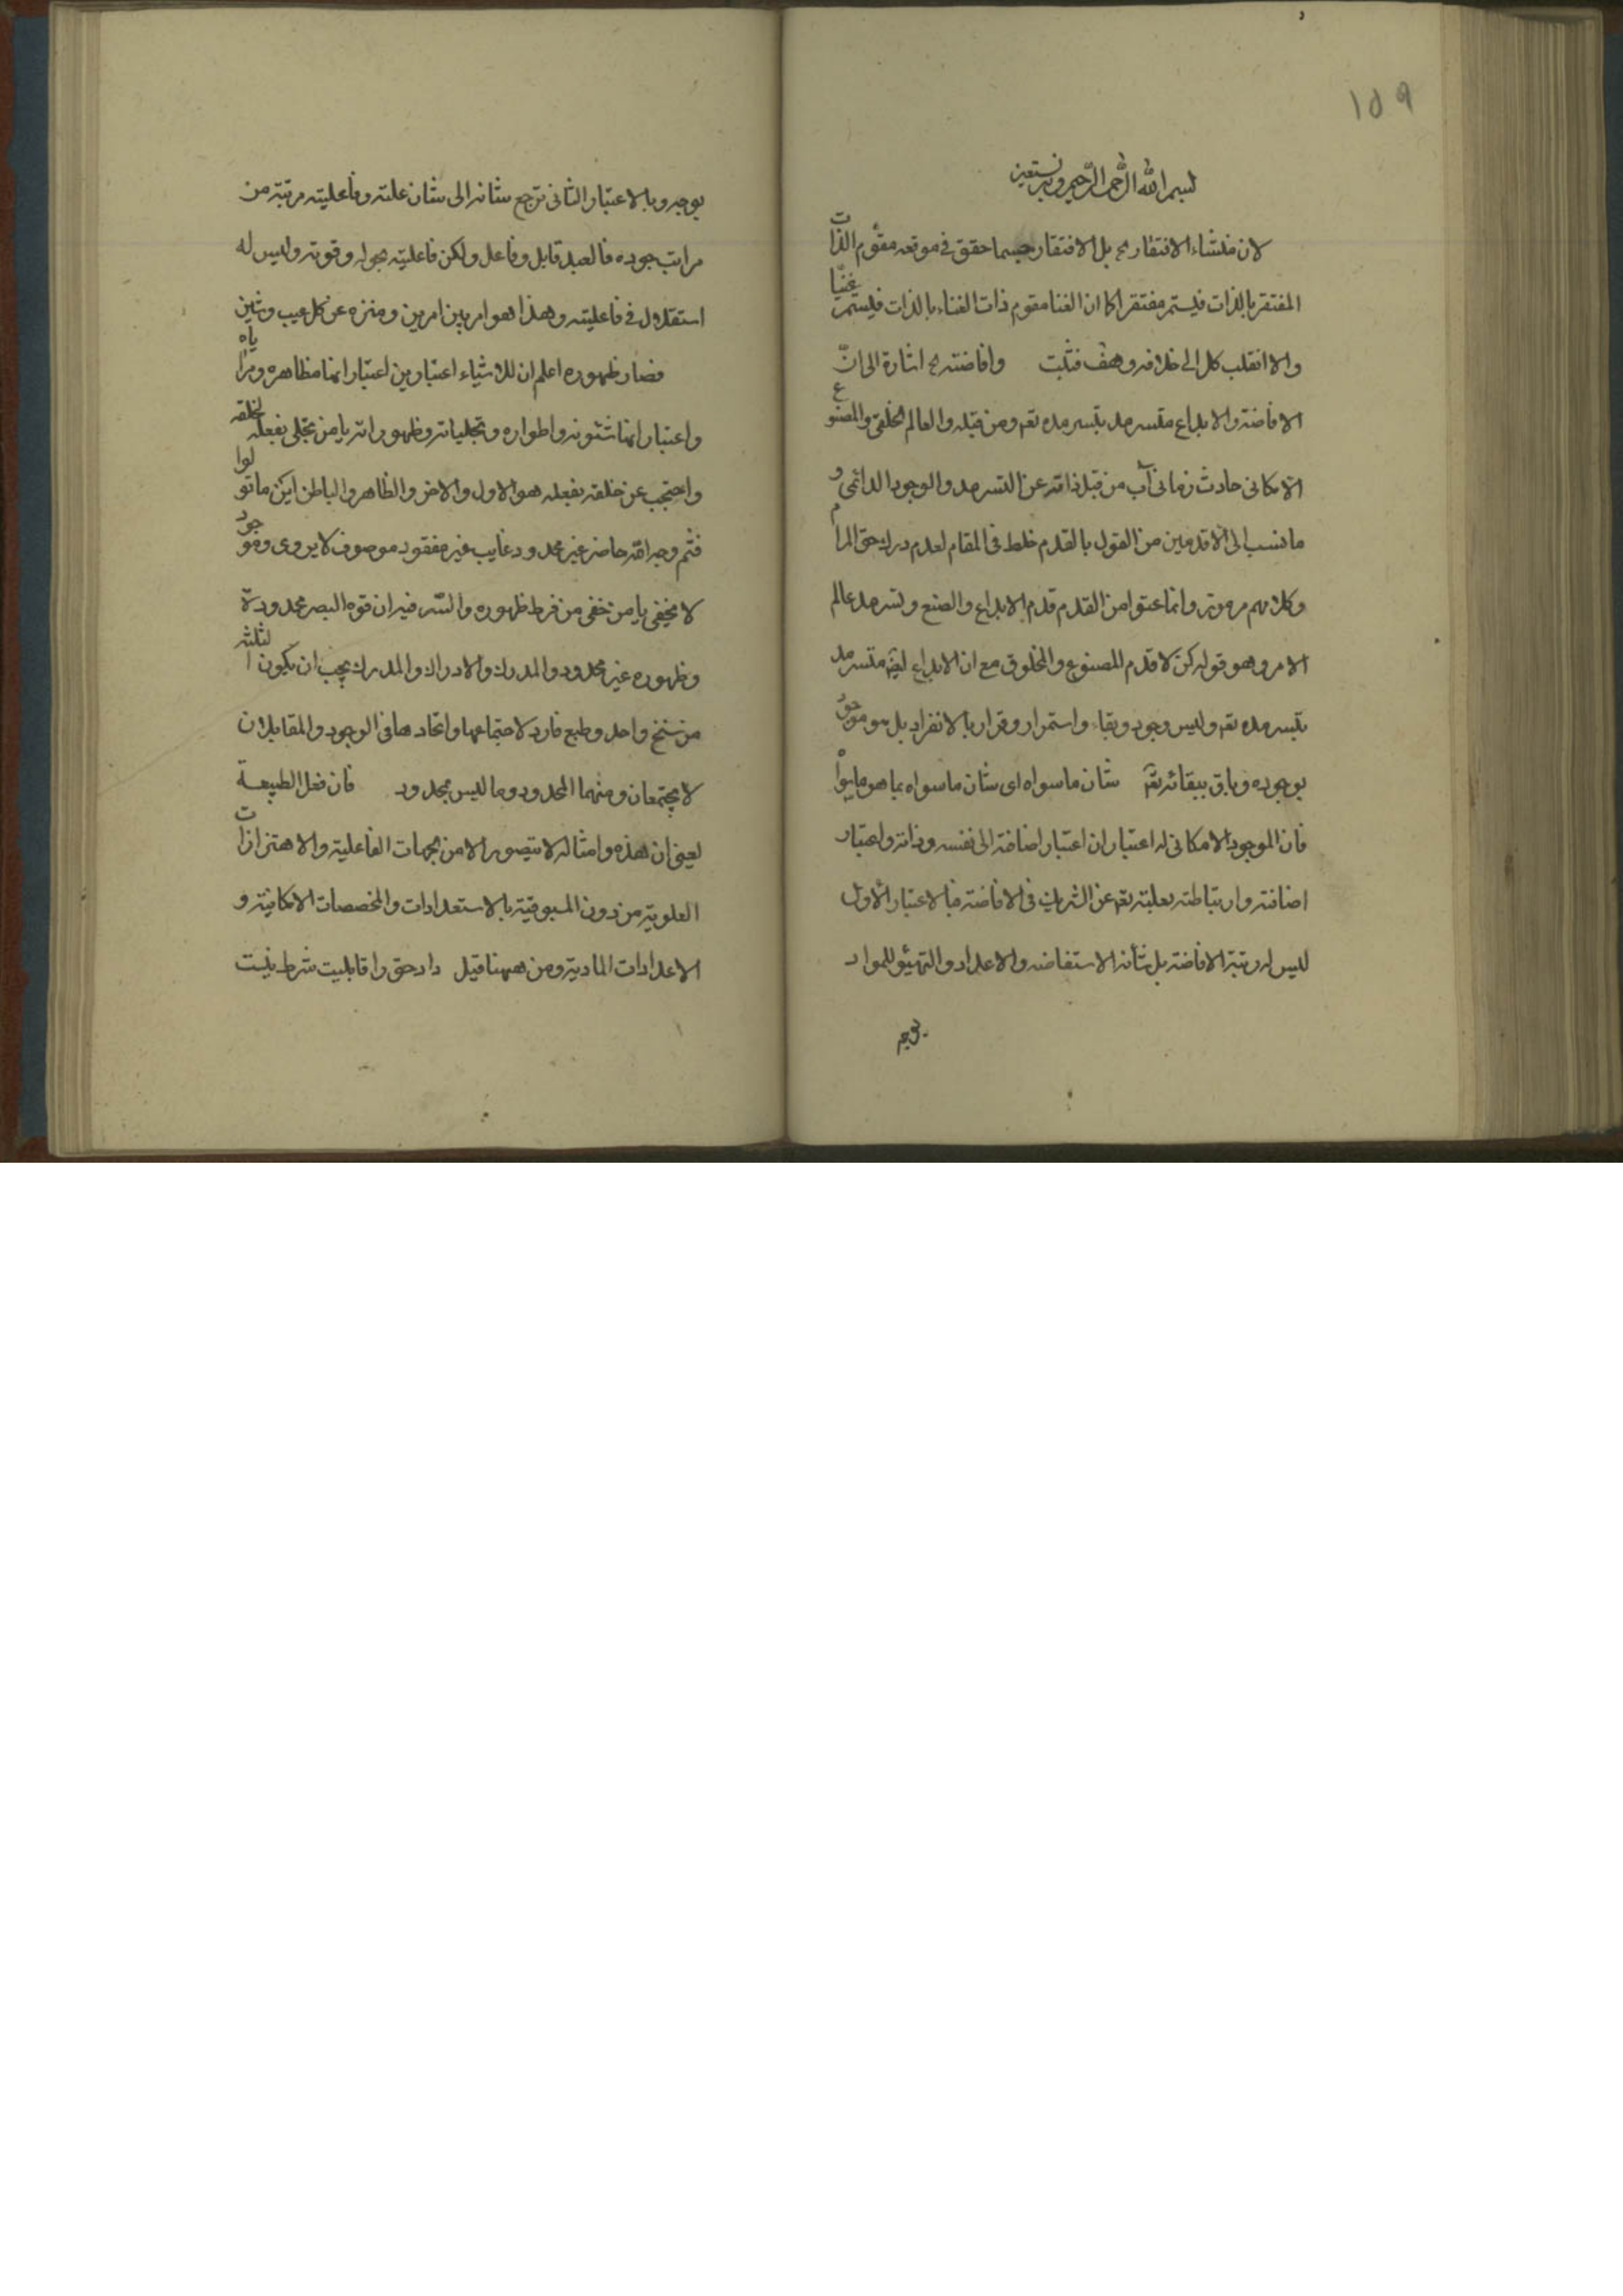 ١٥٩
بسم الله الرحمن الرحيم وبه نستعين
لان منشاء الافتقار ح بل الافتقار حسبما حقق في موقعه مقوم الذات
المفتقر بالذات فيستمر مفتقرا كما ان الغنا مقوم ذات الغناء بالذات فيستمر غنيا
والا انقلب كل الى خلافه وهف فثبت وافاضته ح اشارة الى ان
الافاضة والابداع متسرمد بتسرمده تعم ومن قبله والعالم الخلقي والمصنوع
الامكاني حادث زماني آب من قبل ذاته عن التسرمد والوجود الدائمي و
ما نسب الى الاقدمين من القول بالقدم خلط في المقام لعدم درك حق المرام
وكلامهم مرموز وانما عنوا من القدم قدم الابداع والصنع وتسرمد عالم
الامر وهو قوله كن لا قدم المصنوع والمخلوق مع ان الابداع ليس متسرمد
بتسرمده تعم وليس وجود وبقاء واستمرار وقرار بالانفراد بل هو موجود
بوجوده وباق ببقائه تعم شان ما سواه اى شان ما سواه بما هو ما سواه
فان الموجود الامكاني له اعتباران اعتبار اضافة الى نفسه وذاته واعتبار
اضافته وارتباطته بعلبته تعم عن الشريك في الافاضة فبالاعتبار الاول
ليس له رتبة الافاضة بل شأنه الاستفاضه والاعداد والتهيؤ للمواد
بوجه
بوجه وبالاعتبار الثاني ترجع شانه الى شان علته وفاعليته مرتبة من
مراتب جوده فالعبد قابل وفاعل ولكن فاعليته بحوله وقوته وليس له
استقلال في فاعليته وهذا هو امر بين امرين ومنزه عن كل عيب وشين
فصار ظهوره اعلم ان للاشياء اعتبارين اعتبار انها مظاهره ومراياه
واعتبار انها شئونه واطواره وتجلياته وظهوراته يا من تجلى بفعله لخلقه
واحتجب عن خلقه بفعله هو الاول والاخر والظاهر والباطن اين ما تولوا
فثم وجه الله حاضر غير محدود غايب غير مفقود موصوف لا يروى وموجود
لا يخفى يا من خفى من فرط ظهوره والسر فيه ان قوه البصر محدودة
وظهوره غير محدود والمدرك والادراك والمدرك يجب ان يكون الثلثة
من سنخ واحد وطبع فارد لاجتماعها واتحادها في الوجود والمقابلان
لا يجتمعان ومنهما المحدود وما ليس بمحدود فان فعل الطبيعة
يعني ان هذه وامثاله لا يتصور الا من جهات الفاعلية والاهتزازات
العلوية من دون المسبوقية بالاستعدادات والمخصصات الامكانية و
الاعدادات المادية ومن ههنا قيل داد حق را قابليت شرط نيست